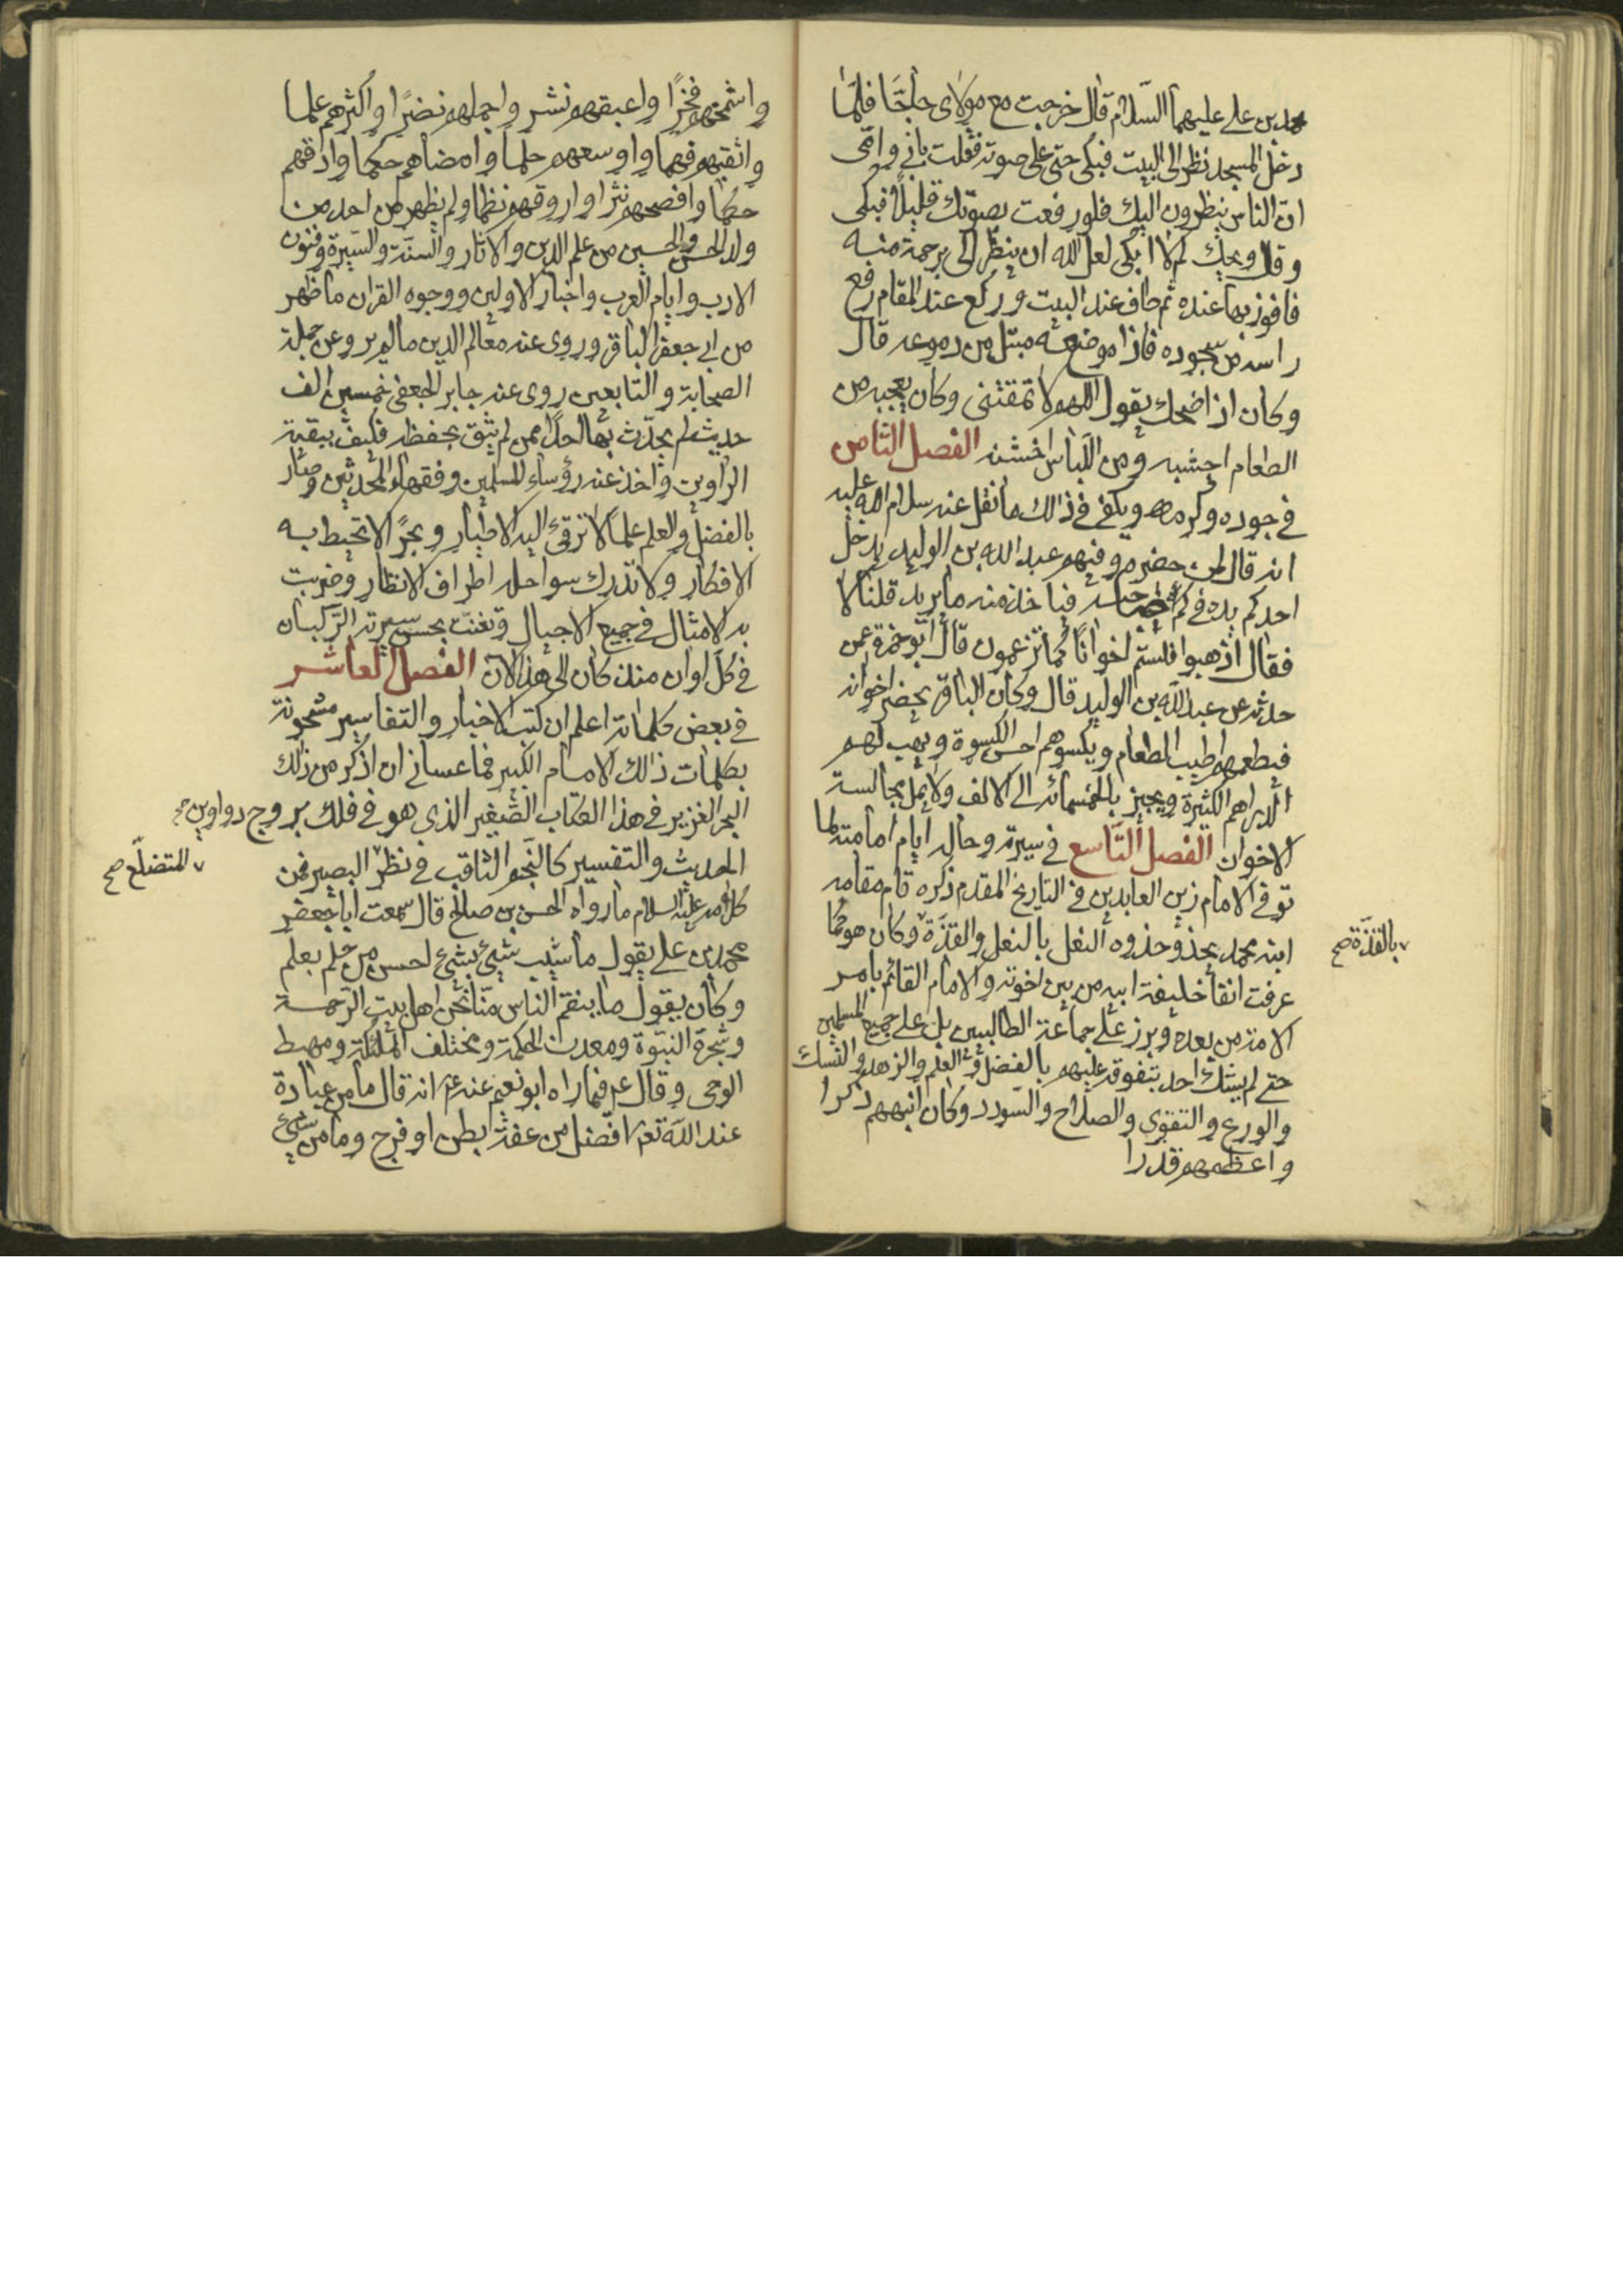 محمد بن علي عليهما السلام قال خرجت مع مولاي حاجا فلما
دخل المسجد نظر الى البيت فبكى حتى على صوته فقلت بابي وامى
ان الناس ينظرون اليك فلو رفعت بصوتك قليلا فبكى
وقال ويحك لم لا ابكى لعل الله ان ينظر الى برحمة منه
فافوز بها عنده ثم طاف عند البيت وركع عند المقام رفع
راسه من سجوده فاذا موضعه مبتل من دموعه قال
وكان اذا ضحك يقول اللهم لا تمقتنى وكان يعجبه من
الطعام اجشبه ومن اللباس اخشنه الفصل الثامن
في جوده وكرمه ويكفي في ذلك ما نقل عنه سلام الله عليه
انه قال لمن حضره وفيهم عبد الله بن الوليد يدخل
احدكم يده في كم صاحبه فياخذ منه ما يريد قلنا لا
فقال اذهبوا فلستم اخوانا كما تزعمون قال ابو حمزة عمن
حدثه عن عبد الله بن الوليد قال وكان الباقر يحضر اخوانه
فيطعمهم اطيب الطعام ويكسوهم احسن الكسوة ويهب لهم
الدراهم الكثيرة ويجيز بالخمسمائة الى الالف ولا يمل مجالسة
الاخوان الفصل التاسع في سيرة وحال ايام امامته لما
توفي الامام زين العابدين في التاريخ المقدم ذكره قام مقامه
ابنه محمد يحذو حذوه النعل بالنعل والقذة وكان هو كما
بالقذة صح
عرفت انفا خليفة ابيه من بين اخوته والامام القائم بامر
الامة من بعده وبرز على جماعة الطالبيين بل على جميع المسلمين
حتى لم يشك احد بتفوقه عليهم بالفضل وفي العلم والزهد والنسك
والورع والتقوى والصلاح والسودد وكان انبههم ذكرا
واعظمهم قدرا
واشمخهم فخرا واعبقهم نشر واجملهم نضرا واكثرهم علما
واثقبهم فهما واوسعهم حلما وامضاهم حكما وادقهم
حكما وافصحهم نثرا واروقهم نظما ولم يظهر من احد من
ولد الحسن والحسين من علم الدين والاثار والسنة والسيرة وفنون
الادب وايام العرب واخبار الاولين ووجوه القران ما ظهر
من ابي جعفر الباقر وروى عنه معالم الدين ما لم يرو عن جملة
الصحابة والتابعين روى عنه جابر الجعفي خمسين الف
حديث لم يحدث بها احدا ممن لم يثق بحفظه فكيف ببقية
الراوين واخذ عنه رؤساء المسلمين وفقهاء المحدثين وصار
بالفضل والعلم علما لا ترقى اليه الاطيار وبحرا لا تحيط به
الافكار ولا تدرك سواحله اطراف الانظار وضربت
به الامثال في جميع الاجيال وتغنت بحسن سيرته الركبان
في كل اوان منذ كان الى هذا الآن الفصل العاشر
في بعض كلماته اعلم ان كتب الاخبار والتفاسير مشحونة
بكلمات ذلك الامام الكبير فما عساني ان اذكر من ذلك
البحر الغزير في هذا الكتاب الصغير الذي هو في فلك بروج دواوين
الحديث والتفسير كالنجم الثاقب في نظر البصير فمن
للمتضلع صح
كلامه عليه السلام ما رواه الحسن بن صالح قال سمعت ابا جعفر
محمد بن علي يقول ما شيب شيئ بشيئ احسن من حلم بعلم
وكان يقول ما ينقم الناس منا نحن اهل بيت الرحمة
وشجرة النبوة ومعدن الحكمة ومختلف الملئكة ومهبط
الوحي وقال عم فيما راه ابو نعيم عنه عم انه قال ما من عبادة
عند الله تعم افضل من عفة بطن او فرج وما من شيئ